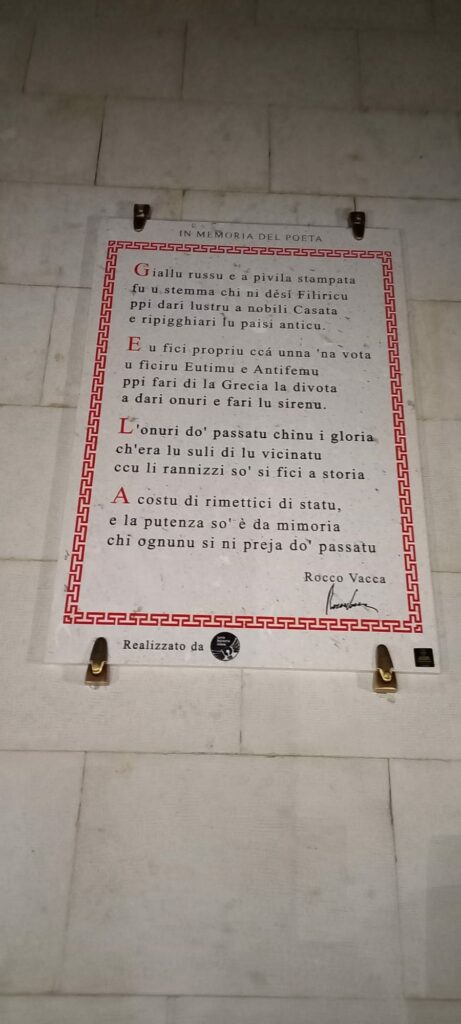 IN MEMORIA DEL POETA
Giallu russu e a pìvila stampata
fu u stemma chi ni désí Filiricu
ppi dari lustru a nobili Casata
e ripigghiari lu paisi anticu.
E u fici propriu ccá unna 'na vota
u ficiru Eutimu e Antifemu
ppi fari di la Grecia la divota
a dari onuri e fari lu sirenu.
L'onuri do' passatu chinu i gloria
ch'era lu suli di lu vicinatu
ccu li rannizzi so' si fici a storia
A costu di rimettici di statu,
e la putenza so' è da mimoria
chi ognunu si ni preja do' passatu
Rocco Vacca
Realizzato da